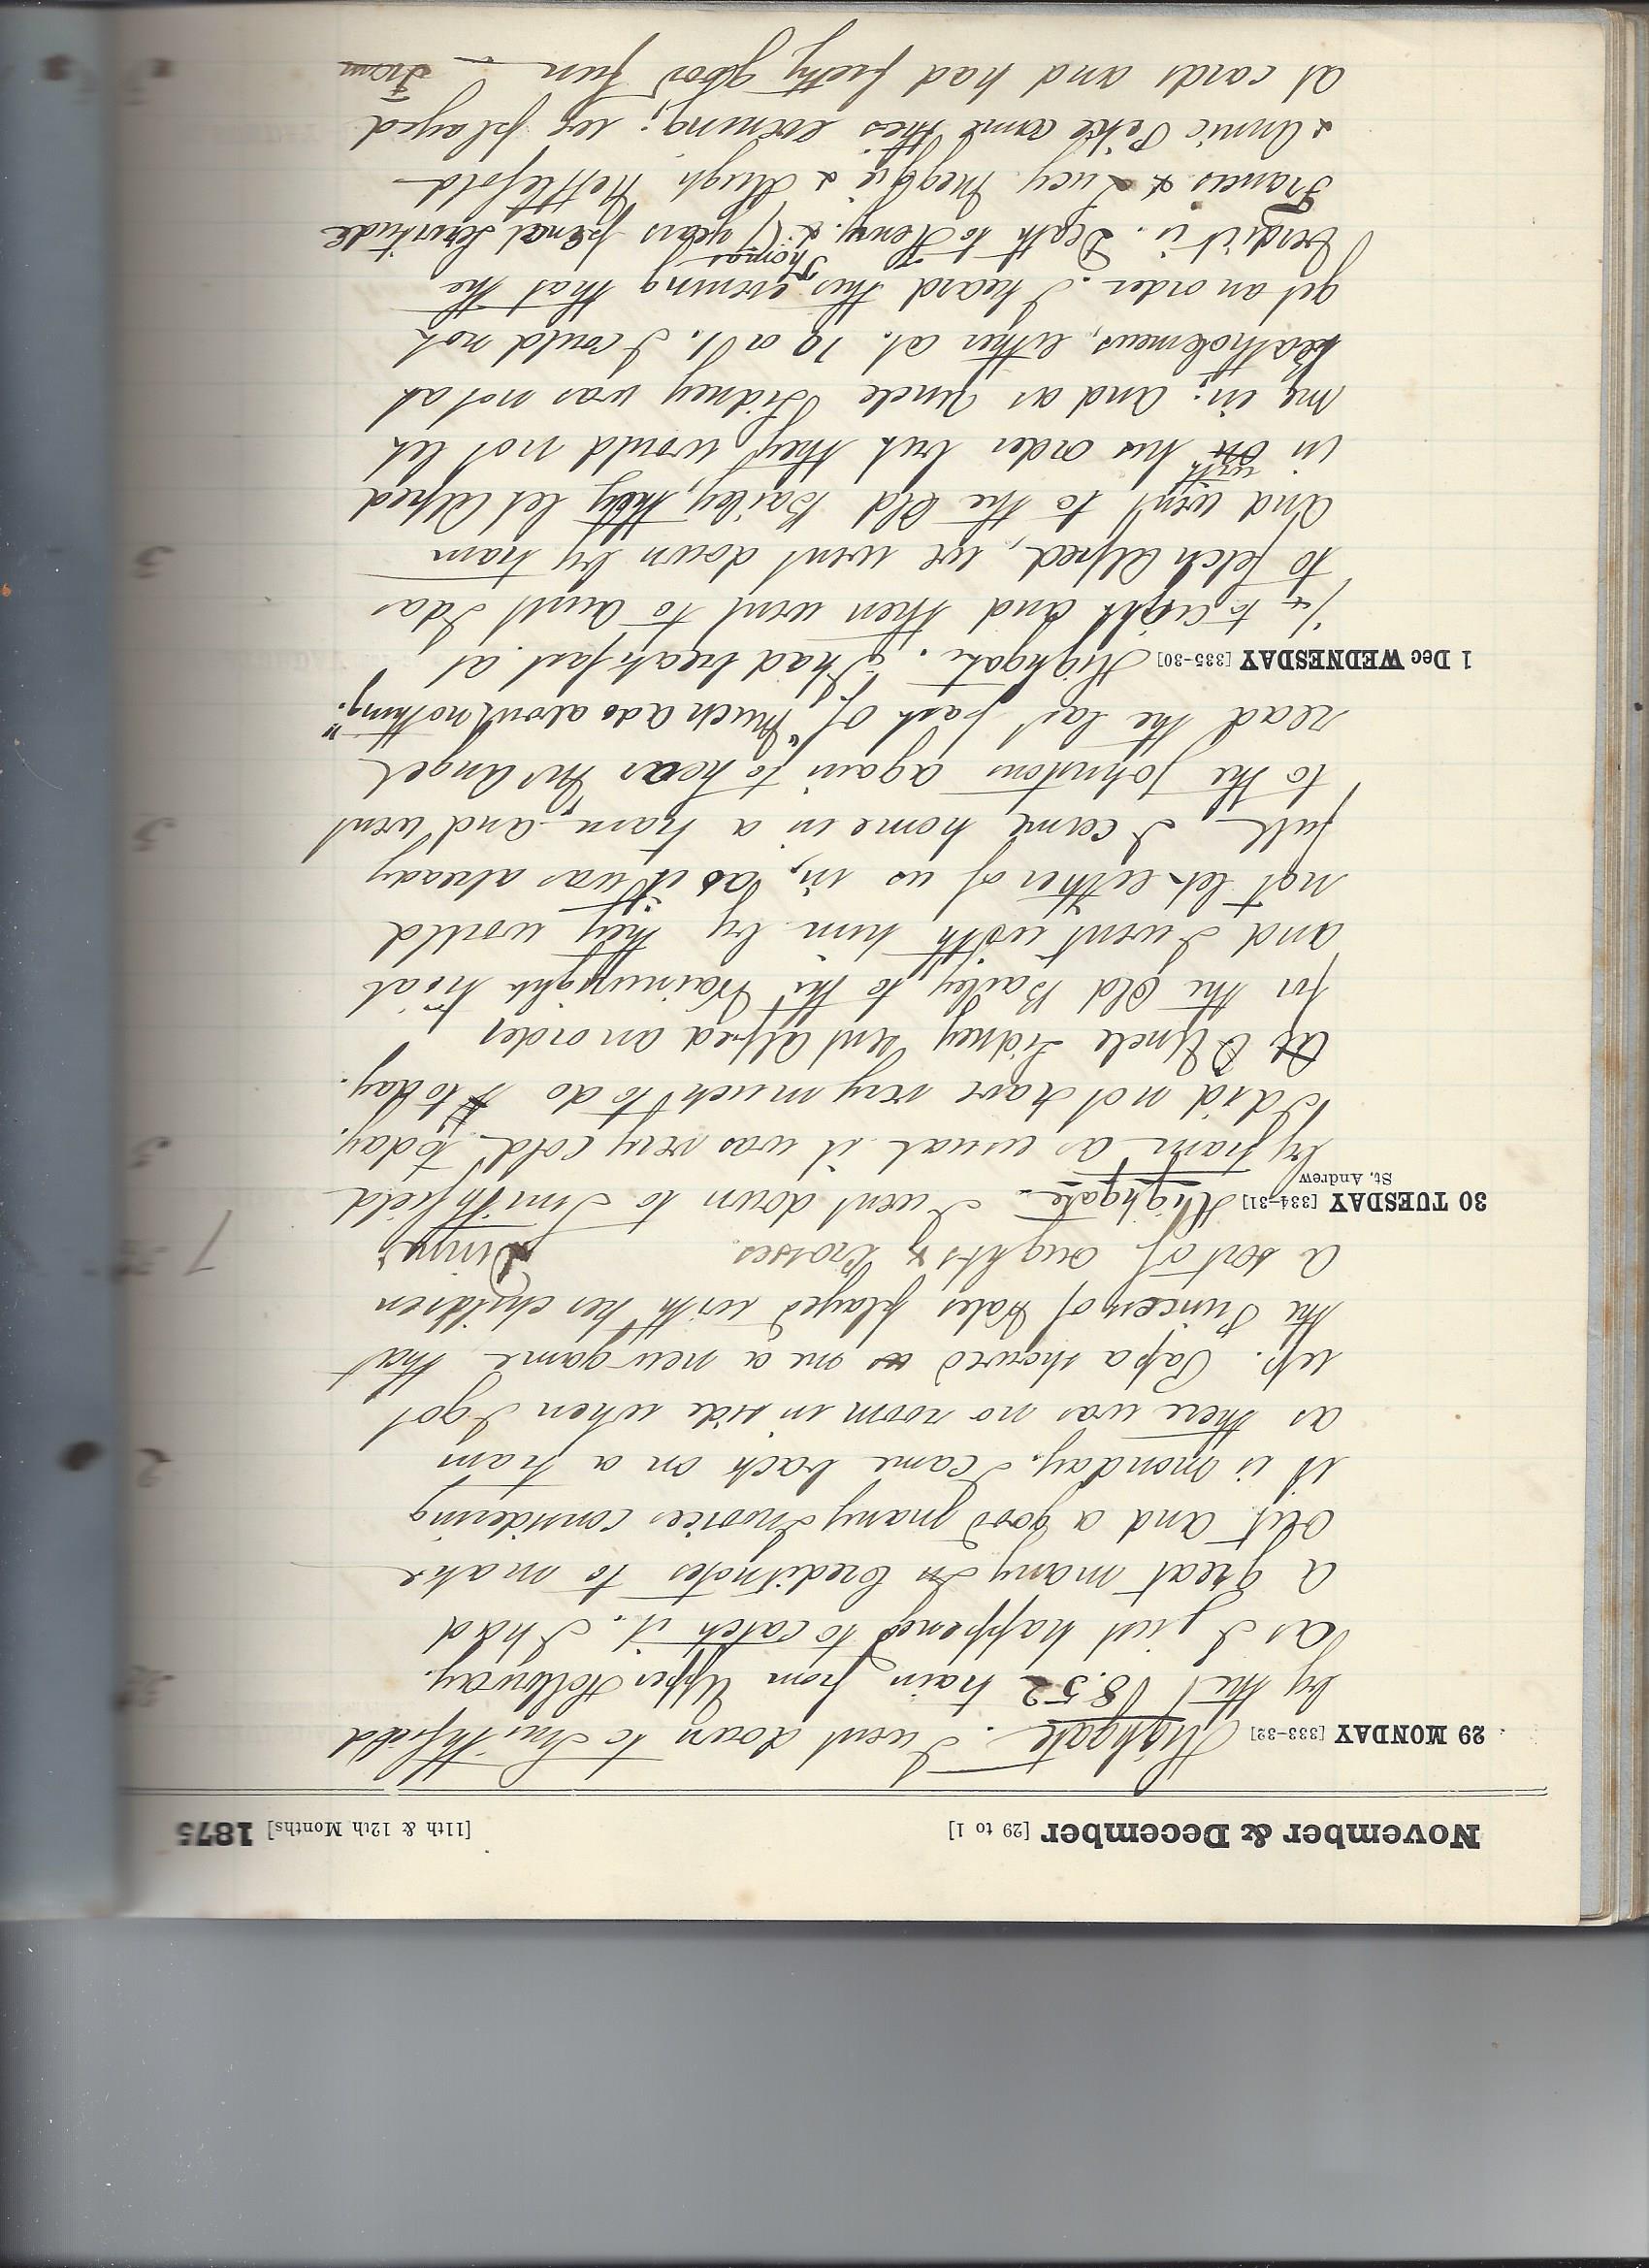 November & December [29 to 1] [11th & 12th Months] 1875
29 MONDAY [333-32] Highgate. I went down to Smithfield
by the 8.52 train from Upper Holloway.
as I just happened to catch it. I had
a great many In Creditnotes to make
out and a good many Invoices considering
it is Monday. I came back on a tram
as there was no room inside when I got
up. Papa showed me a new game that
the Princess of Wales played with her children
a sort of oughts & Crosses.
30 TUESDAY [334-31] Highgate. I went down to Smithfield
St. Andrew
by tram as usual it was very cold today.
I did not have very much to do today.
Uncle Sidney sent Alfred an order
for the Old Bailey to the Wainwright trial
and I went with him by they would
not let either of us in, as it was already
full. I came home in a tram and went
to the Johnstons again to hear Mr Angel
read the last part of "Much ado about nothing."
1 Dec WEDNESDAY [335-30] Highgate. I had breakfast at
1/4 to eight and then went to Aunt Idas
to fetch Alfred, we went down by tram
and went to the Old Bailey, they let Alfred
in with his order but they would not let
me in; and as Uncle Sidney was not at
Bartholomews, either at 10 or 1, I could not
get an order. I heard this evening that the
Verdict is. Death to Henry. & Thomas 7 years penal servitude
Francis & Lucy Meggie & Hugh Nettlefold
& Annie Pike came this evening; we played
at cards and had pretty good fun — From